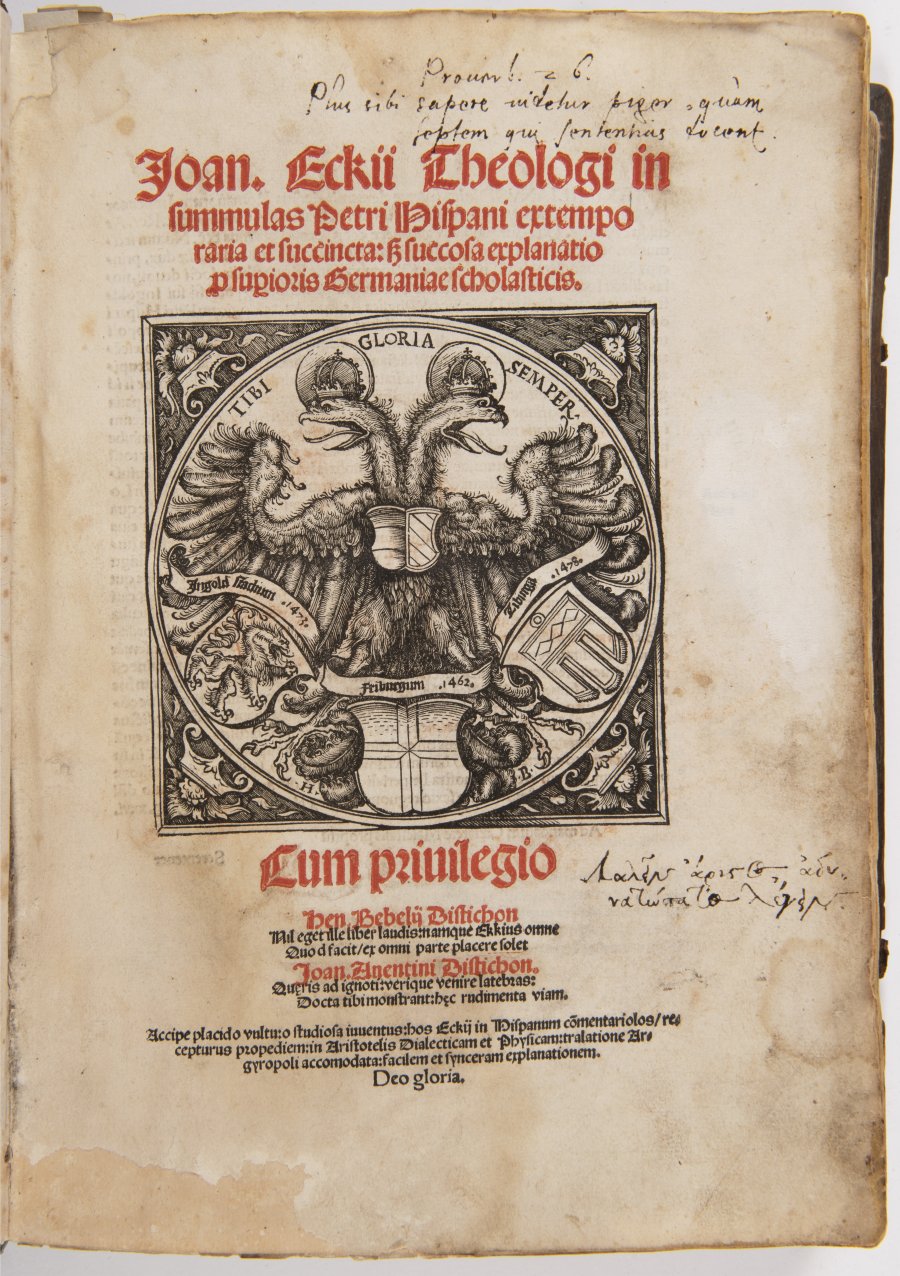 Prouerb. 26.
Plus sibi sapere uidetur piger quam
septem qui sententias docent.
Joan. Eckii Theologi in
summulas Petri Hispani extempo
raria et succincta: sꝫ succosa explanatio
ꝓ suꝑioris Germaniae scholasticis.
TIBI GLORIA SEMPER.
Ingolstadium .1473.
Tubinga .1478.
Friburgum .1462.
.H. .B.
Cum priuilegio
Hen. Bebelij Distichon
Nil eget ille liber laudis: namque Ekkius omne
Quod facit/ex omni parte placere solet
Joan. Auentini Distichon.
Queris ad ignoti: verique venire latebras:
Docta tibi monstrant: hęc rudimenta viam.
Accipe placido vultu: o studiosa iuuentus: hos Eckij in Hispanum cōmentariolos/re-
cepturus propediem: in Aristotelis Dialecticam et Physicam: tralatione Ar-
gyropoli accomodata: facilem et synceram explanationem.
Deo gloria.